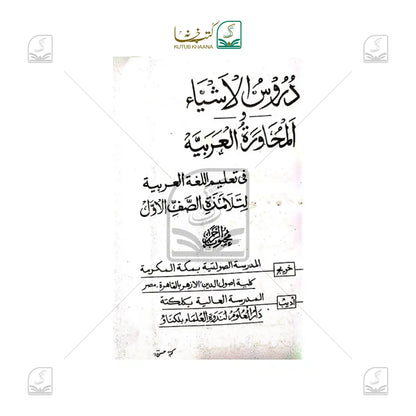 کتب خانہ
KUTUB KHAANA
دُرُوسُ الْاَشْيَاء
و
اَلْمُحَاوَرَةُ الْعَرَبِيَّة
فى تعليم اللغة العربية
لِتَلَامِذَةِ الصَّفِّ الْاَوَّلِ
محبوب الرحمن
خريج
المدرسة الصولتية بمكة المكرمة
كلية اصول الدين الازهر بالقاهرة. مصر
المدرسة العالية بكلكتة
دار العلوم لندوة العلماء بلكناؤ